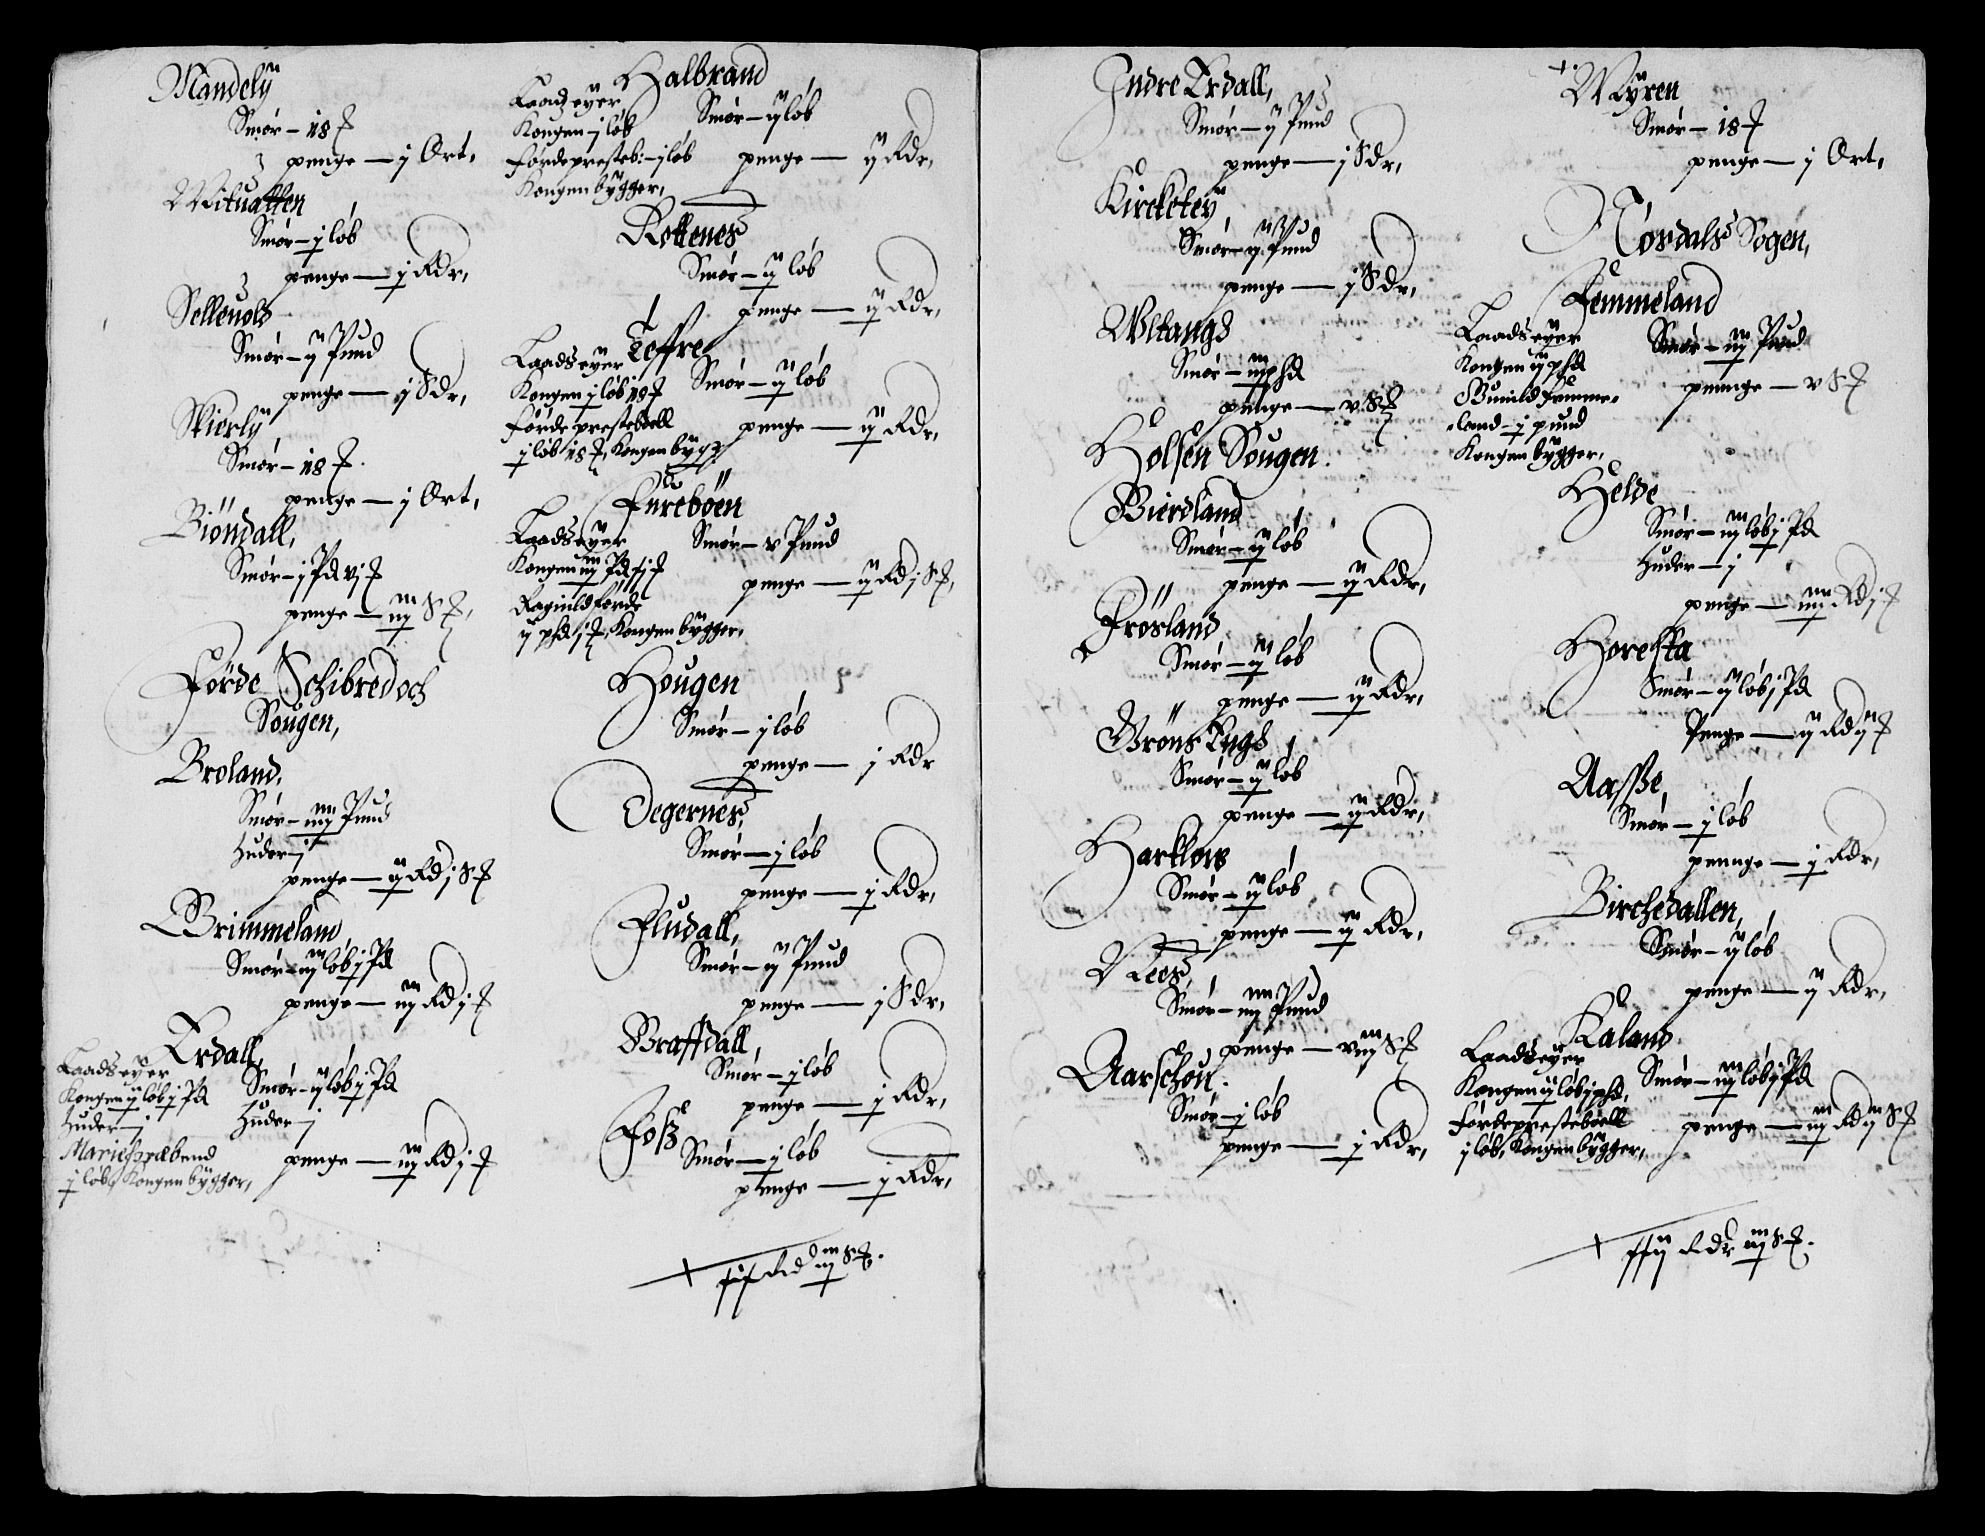 Mandelÿ
Smør – 18 ₰
penge — j Ort,
Smør – j løb
penge — j Rdr,
Sellevold
Smør – ij Pund
penge — j Sdr,
Skierlÿ
Smør – 18 ₰.
penge — j Ort,
Biöndall,
Smør – j Pd vj ₰
penge — iij S ₰,
Förde Schibred och
Sougen,
Broland,
Smør – iiij Pund
huder – j
penge — ij Rd j S ₰
Brimmeland,
Smør – iij løb j Pd
penge — iij Rd j ₰
Erdall,
Laads eÿer
Kongen ij løb j Pd
huder – j
Mariæ præbend
j løb, Kongen bÿgger,
Smør – ij løb j Pd
huder – j
penge — iij Rd j ₰
Halbrand
Laads eÿer
Kongen – j løb
førde presteb: – j løb
Kongen bÿgger,
Smør – ij løb
penge — ij Rdr,
Rottenes
Smør – ij løb
penge — ij Rdr,
Teffre
Laads eÿer
Kongen j løb 18 ₰
førde presteboell
j løb 18 ₰, Kongen bÿgg:
Smør – ij løb
penge — ij Rdr,
Fureböen
Laads eÿer
Kongen iij Pd
Raginld førde
ij phd j ₰, Kongen bÿgger,
Smør – v Pund
penge — ij Rd j S ₰,
Hougen
Smør – j løb
penge — j Rdr
Degernes,
Smør — j løb
penge — j Rdr,
Fludall,
Smør – ij Pund
penge — j Sdr,
Braffdall,
Smør – j løb
penge — j Rdr,
Foss
Smør — j løb
penge — j Rdr,
Rd iij S ₰.
Indre Erdall,
Smør — ij Pund
penge — j Sdr,
Kircketeÿ
Smør – ij Pund
penge — j Sdr,
Vltangs
Smør – iij phd
penge — v S ₰
Holsen Sougen.
Bierdland
Smør – ij løb
penge — ij Rdr,
Frösland,
Smør – ij løb
penge — ij Rdr,
Gröns Engs
Smør – ij løb
penge — ij Rdr,
Harklow
Smør – ij løb
penge — ij Rdr,
Nees,
Smør – iiij Pund
penge — viij S ₰
Aarschou.
Smør – j løb
penge — j Rdr,
+ Mÿren
Smør – 18 ₰
penge — j Ort,
Nordals Sogen,
Femmeland
Laads eÿer
Kongen ij phd
Gunild femme-
land – j pund
Kongen bÿgger,
Smør – iij Pund
pennge — v S ₰
Helde
Smør – iij løb j Pd
huder — j
penge — iiij Rd j ₰
Smør – ij løb j Pd
Penge — ij Rd ij ₰
Aasse,
Smør – j løb
pennge — j Rdr,
Birchedallen,
Smør – ij løb
penge — ij Rdr,
Kaland
Laads eÿer
Kongen ij løb j phd,
førde presteboell
j løb, Kongen bÿgger,
Smør – iij løb j Pd
penge — iij Rd iij S ₰
Rdr iij S ₰.